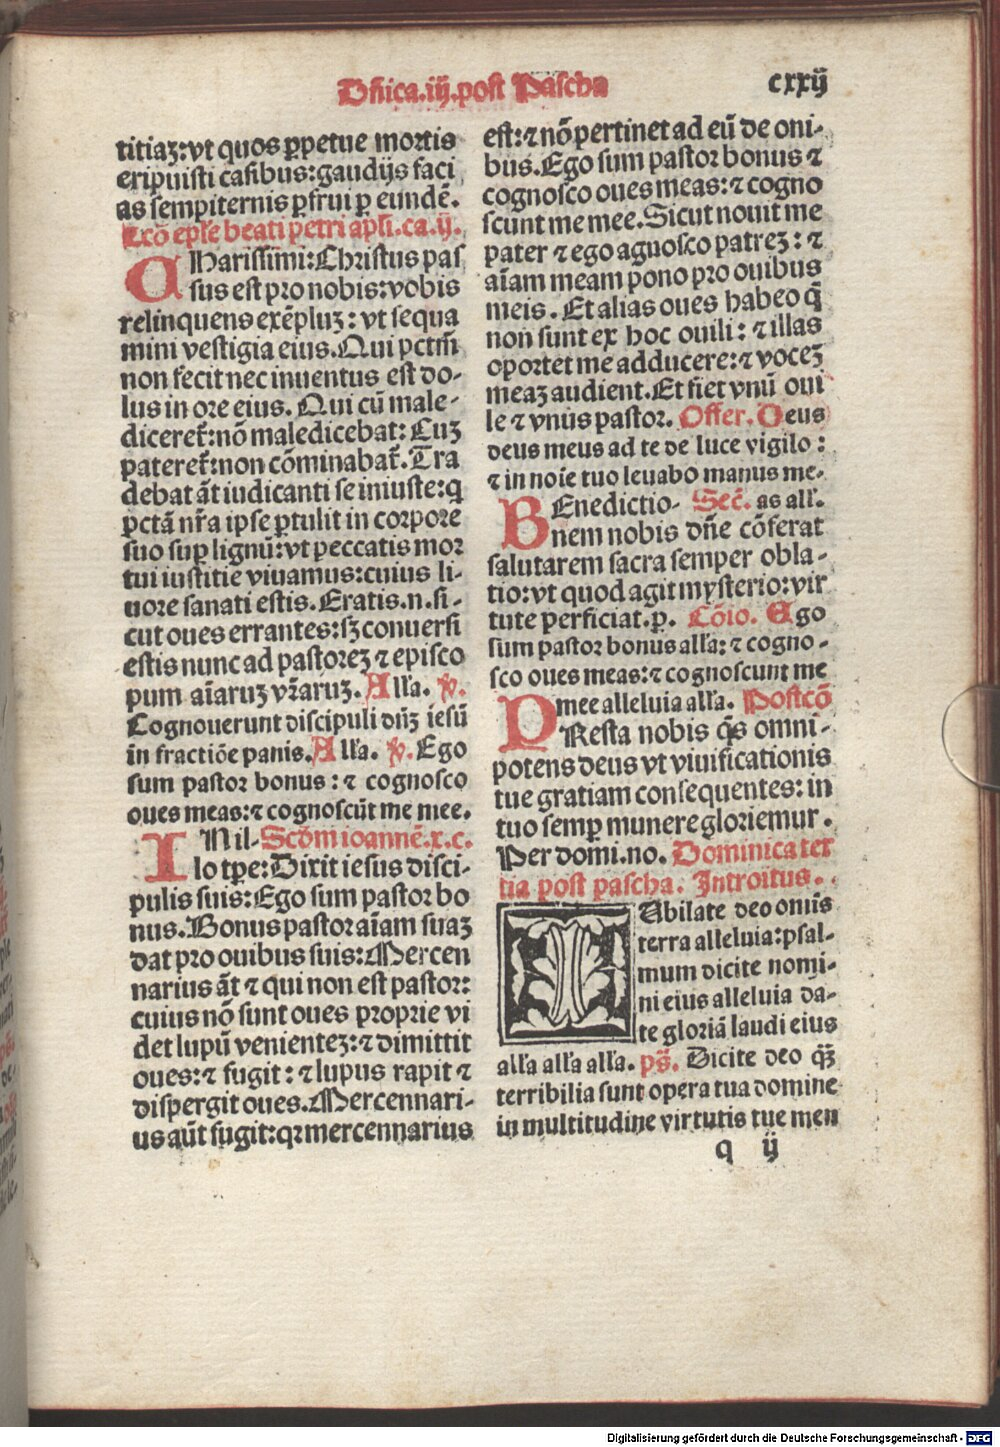 Dñica.iij.post Pascha
cxxij
titiaʒ:vt quos ꝑpetue mortis
eripuisti casibus:gaudijs faci
as sempiternis ꝑfrui ꝑ eundē.
Lcō eplꝭe beati petri apſi.ca.ij.
CHarissimi:Christus pas
sus est pro nobis:vobis
relinquens exēpluʒ: vt sequa
mini vestigia eius.Qui pctm̄
non fecit nec inuentus est do-
lus in ore eius. Qui cū male-
diceret̄:nō maledicebat: Cuʒ
pateret̄:non cōminabat̄.Tra
debat āt iudicanti se iniuste:q
pctā nr̄a ipse ꝑtulit in corpore
suo suꝑ lignū:vt peccatis mor
tui iustitie viuamus:cuius li-
uore sanati estis.Eratis.n.si-
cut oues errantes:sʒ conuersi
estis nunc ad pastoreʒ ⁊ episco
pum aīaruʒ vr̄aruʒ. Alľa. ℣.
Cognouerunt discipuli dn̄ʒ iesū
in fractiōe panis.Alľa. ℣.Ego
sum pastor bonus: ⁊ cognosco
oues meas:⁊ cognoscūt me mee.
INil- Scd̄m ioannē.x.c.
lo tꝑe:Dixit iesus disci-
pulis suis:Ego sum pastor bo
nus.Bonus pastor aīam suaʒ
dat pro ouibus suis:Mercen
narius āt ⁊ qui non est pastor:
cuius nō sunt oues proprie vi
det lupū venienteʒ:⁊ dimittit
oues:⁊ fugit: ⁊ lupus rapit ⁊
dispergit oues.Mercennari-
us aūt fugit:qꝛ mercennarius
est:⁊ nō pertinet ad eū de oni-
bus.Ego sum pastor bonus ⁊
cognosco oues meas:⁊ cogno
scunt me mee.Sicut nouit me
pater ⁊ ego agnosco patreʒ: ⁊
aīam meam pono pro ouibus
meis. Et alias oues habeo q̄
non sunt ex hoc ouili: ⁊ illas
oportet me adducere:⁊ voceʒ
meaʒ audient.Et fiet vnū oui
le ⁊ vnus pastor. Offer. Deus
deus meus ad te de luce vigilo:
⁊ in noīe tuo leuabo manus me-
BEnedictio- Sec̄. as alľ.
nem nobis dn̄e cōferat
salutarem sacra semper obla-
tio:vt quod agit mysterio:vir
tute perficiat.p. Cōio. Ego
sum pastor bonus alľa: ⁊ cogno-
sco oues meas:⁊ cognoscunt me
mee alleluia alľa. Postcō
PResta nobis q̄s omni-
potens deus vt viuificationis
tue gratiam consequentes: in
tuo semꝑ munere gloriemur.
Per domi.no. Dominica ter
tia post pascha. Introitus.
IUbilate deo omīs
terra alleluia:psal-
mum dicite nomi-
ni eius alleluia da-
te gloriā laudi eius
alľa alľa alľa. pš. Dicite deo q̄ʒ
terribilia sunt opera tua domine
in multitudine virtutis tue men
q ij
Digitalisierung gefördert durch die Deutsche Forschungsgemeinschaft - DFG